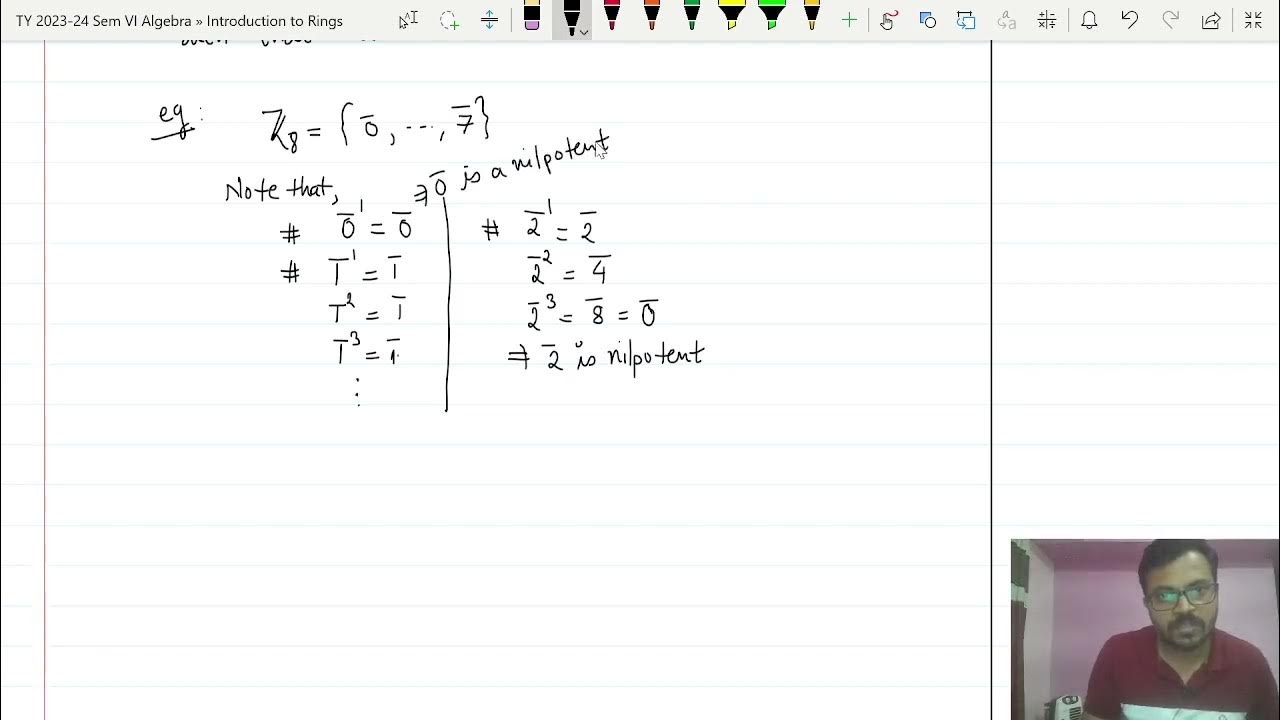 TY 2023-24 Sem VI Algebra » Introduction to Rings
eg :
ℤ₈ = { 0̄ , ⋯ , 7̄ }
Note that,
⇒ 0̄ is a nilpotent
# 0̄¹ = 0̄
# 1̄¹ = 1̄
1̄² = 1̄
1̄³ = 1̄
⋮
# 2̄¹ = 2̄
2̄² = 4̄
2̄³ = 8̄ = 0̄
⇒ 2̄ is nilpotent